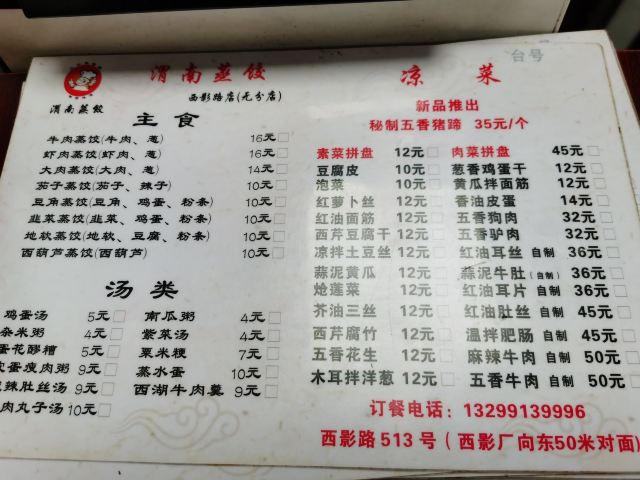 台号
渭南蒸饺 凉菜
渭南蒸饺 西影路店(无分店)
主食
牛肉蒸饺(牛肉、葱) 16元
虾肉蒸饺(虾肉、葱) 16元
大肉蒸饺(大肉、葱) 14元
茄子蒸饺(茄子、辣子) 10元
豆角蒸饺(豆角、鸡蛋、粉条) 10元
韭菜蒸饺(韭菜、鸡蛋、粉条) 10元
地软蒸饺(地软、豆腐、粉条) 10元
西葫芦蒸饺(西葫芦) 10元
汤类
鸡蛋汤 5元 南瓜粥 4元
杂米粥 4元 紫菜汤 4元
蛋花醪糟 5元 粟米粳 7元
蛋瘦肉粥 9元 蒸水蛋 10元
辣肚丝汤 9元 西湖牛肉羹 9元
肉丸子汤 10元
新品推出
秘制五香猪蹄 35元/个
素菜拼盘 12元 肉菜拼盘 45元
豆腐皮 10元 葱香鸡蛋干 12元
泡菜 10元 黄瓜拌面筋 12元
红萝卜丝 12元 香油皮蛋 14元
红油面筋 12元 五香狗肉 32元
西芹豆腐干 12元 五香驴肉 32元
凉拌土豆丝 12元 红油耳丝 自制 36元
蒜泥黄瓜 12元 蒜泥牛肚(自制) 36元
炝莲菜 12元 红油耳片 自制 36元
芥油三丝 12元 红油肚丝 自制 36元
西芹腐竹 12元 温拌肥肠 自制 45元
五香花生 12元 麻辣牛肉 自制 50元
木耳拌洋葱 12元 五香牛肉 自制 50元
订餐电话：13299139996
西影路513号（西影厂向东50米对面）